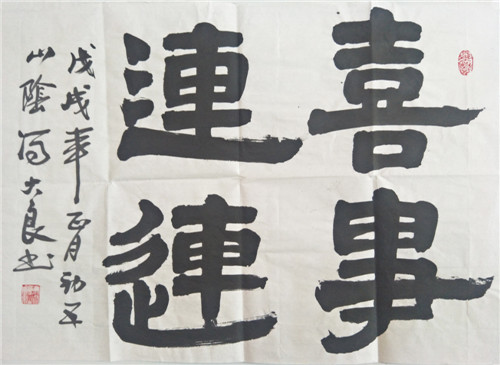 喜事
連連
戊戌年正月初五
山陰馮大良书